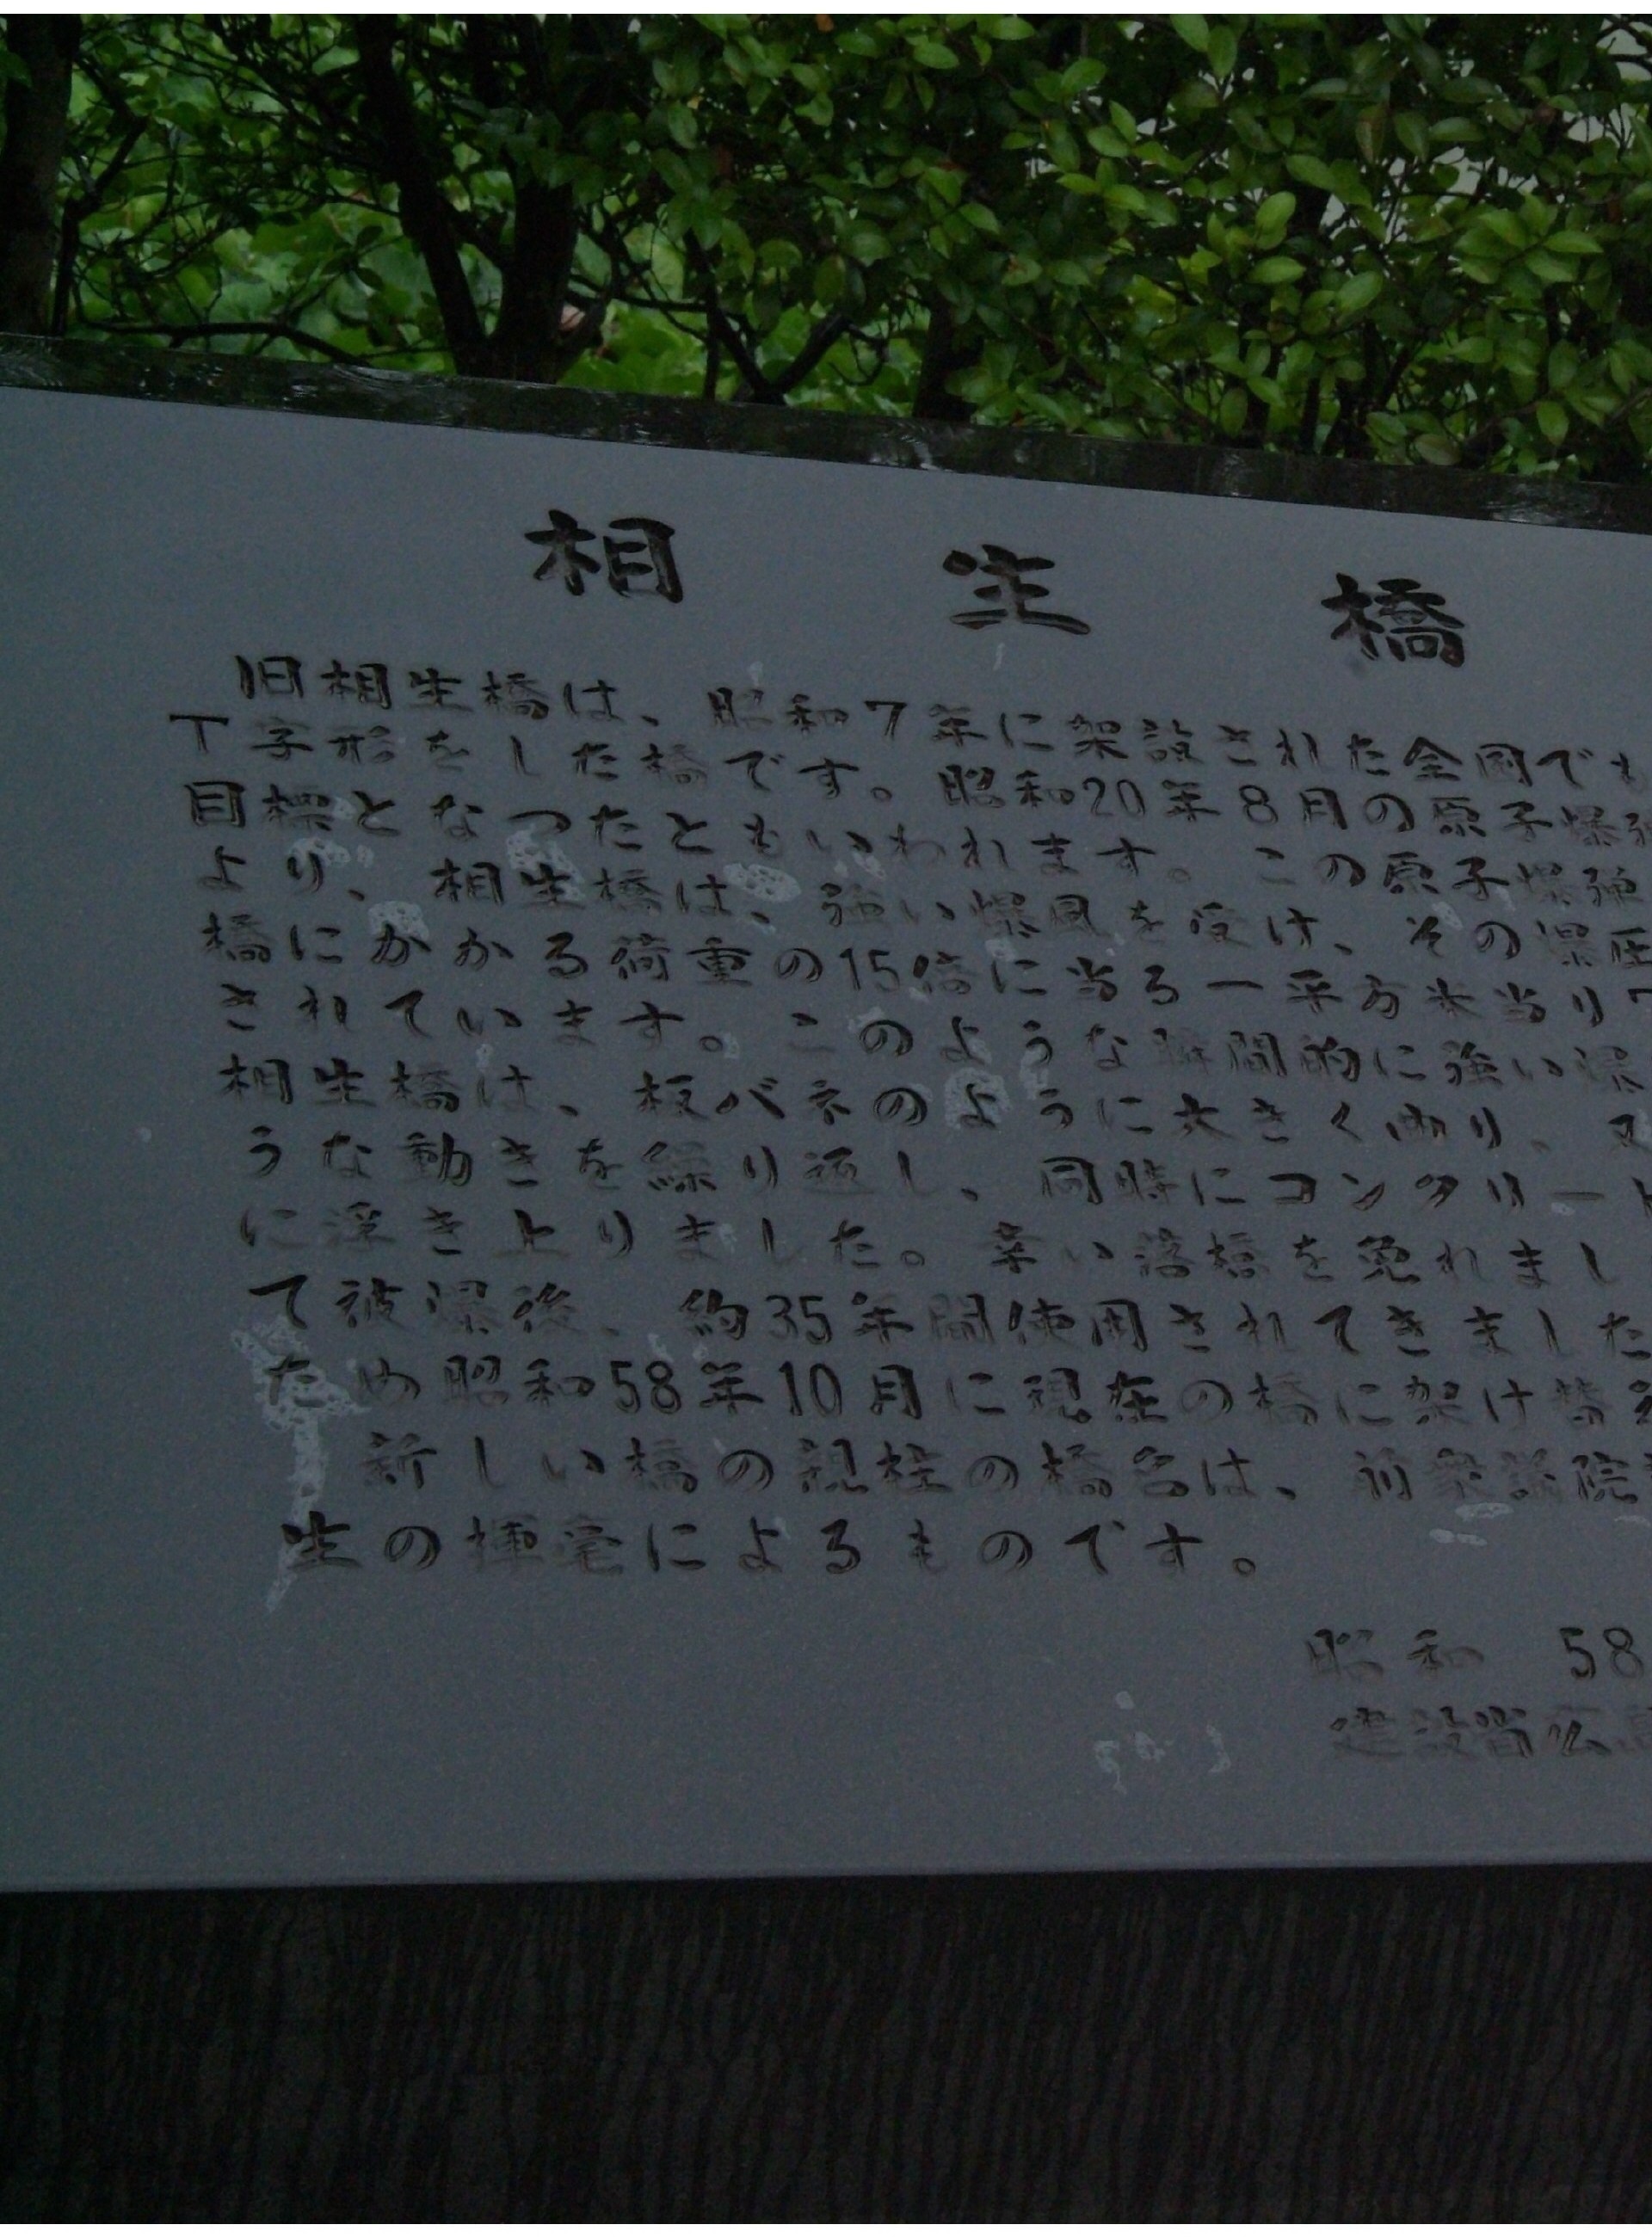 相生橋
旧相生橋は、昭和7年に架設された全国でも
T字形をした橋です。昭和20年8月の原子爆弾
目標となつたともいわれます。この原子爆弾
より、相生橋は、強い爆風を受け、その爆圧
橋にかかる荷重の15倍に当る一平方米当り7
されています。このような瞬間的に強い爆
相生橋は、板バネのように大きく曲り、又
うな動きを繰り返し、同時にコンクリート
に浮き上りました。幸い落橋を免れまし
て被爆後、約35年間使用されてきました
ため昭和58年10月に現在の橋に架け替え
新しい橋の親柱の橋名は、前衆議院
生の揮毫によるものです。
昭和 58
建設省広島